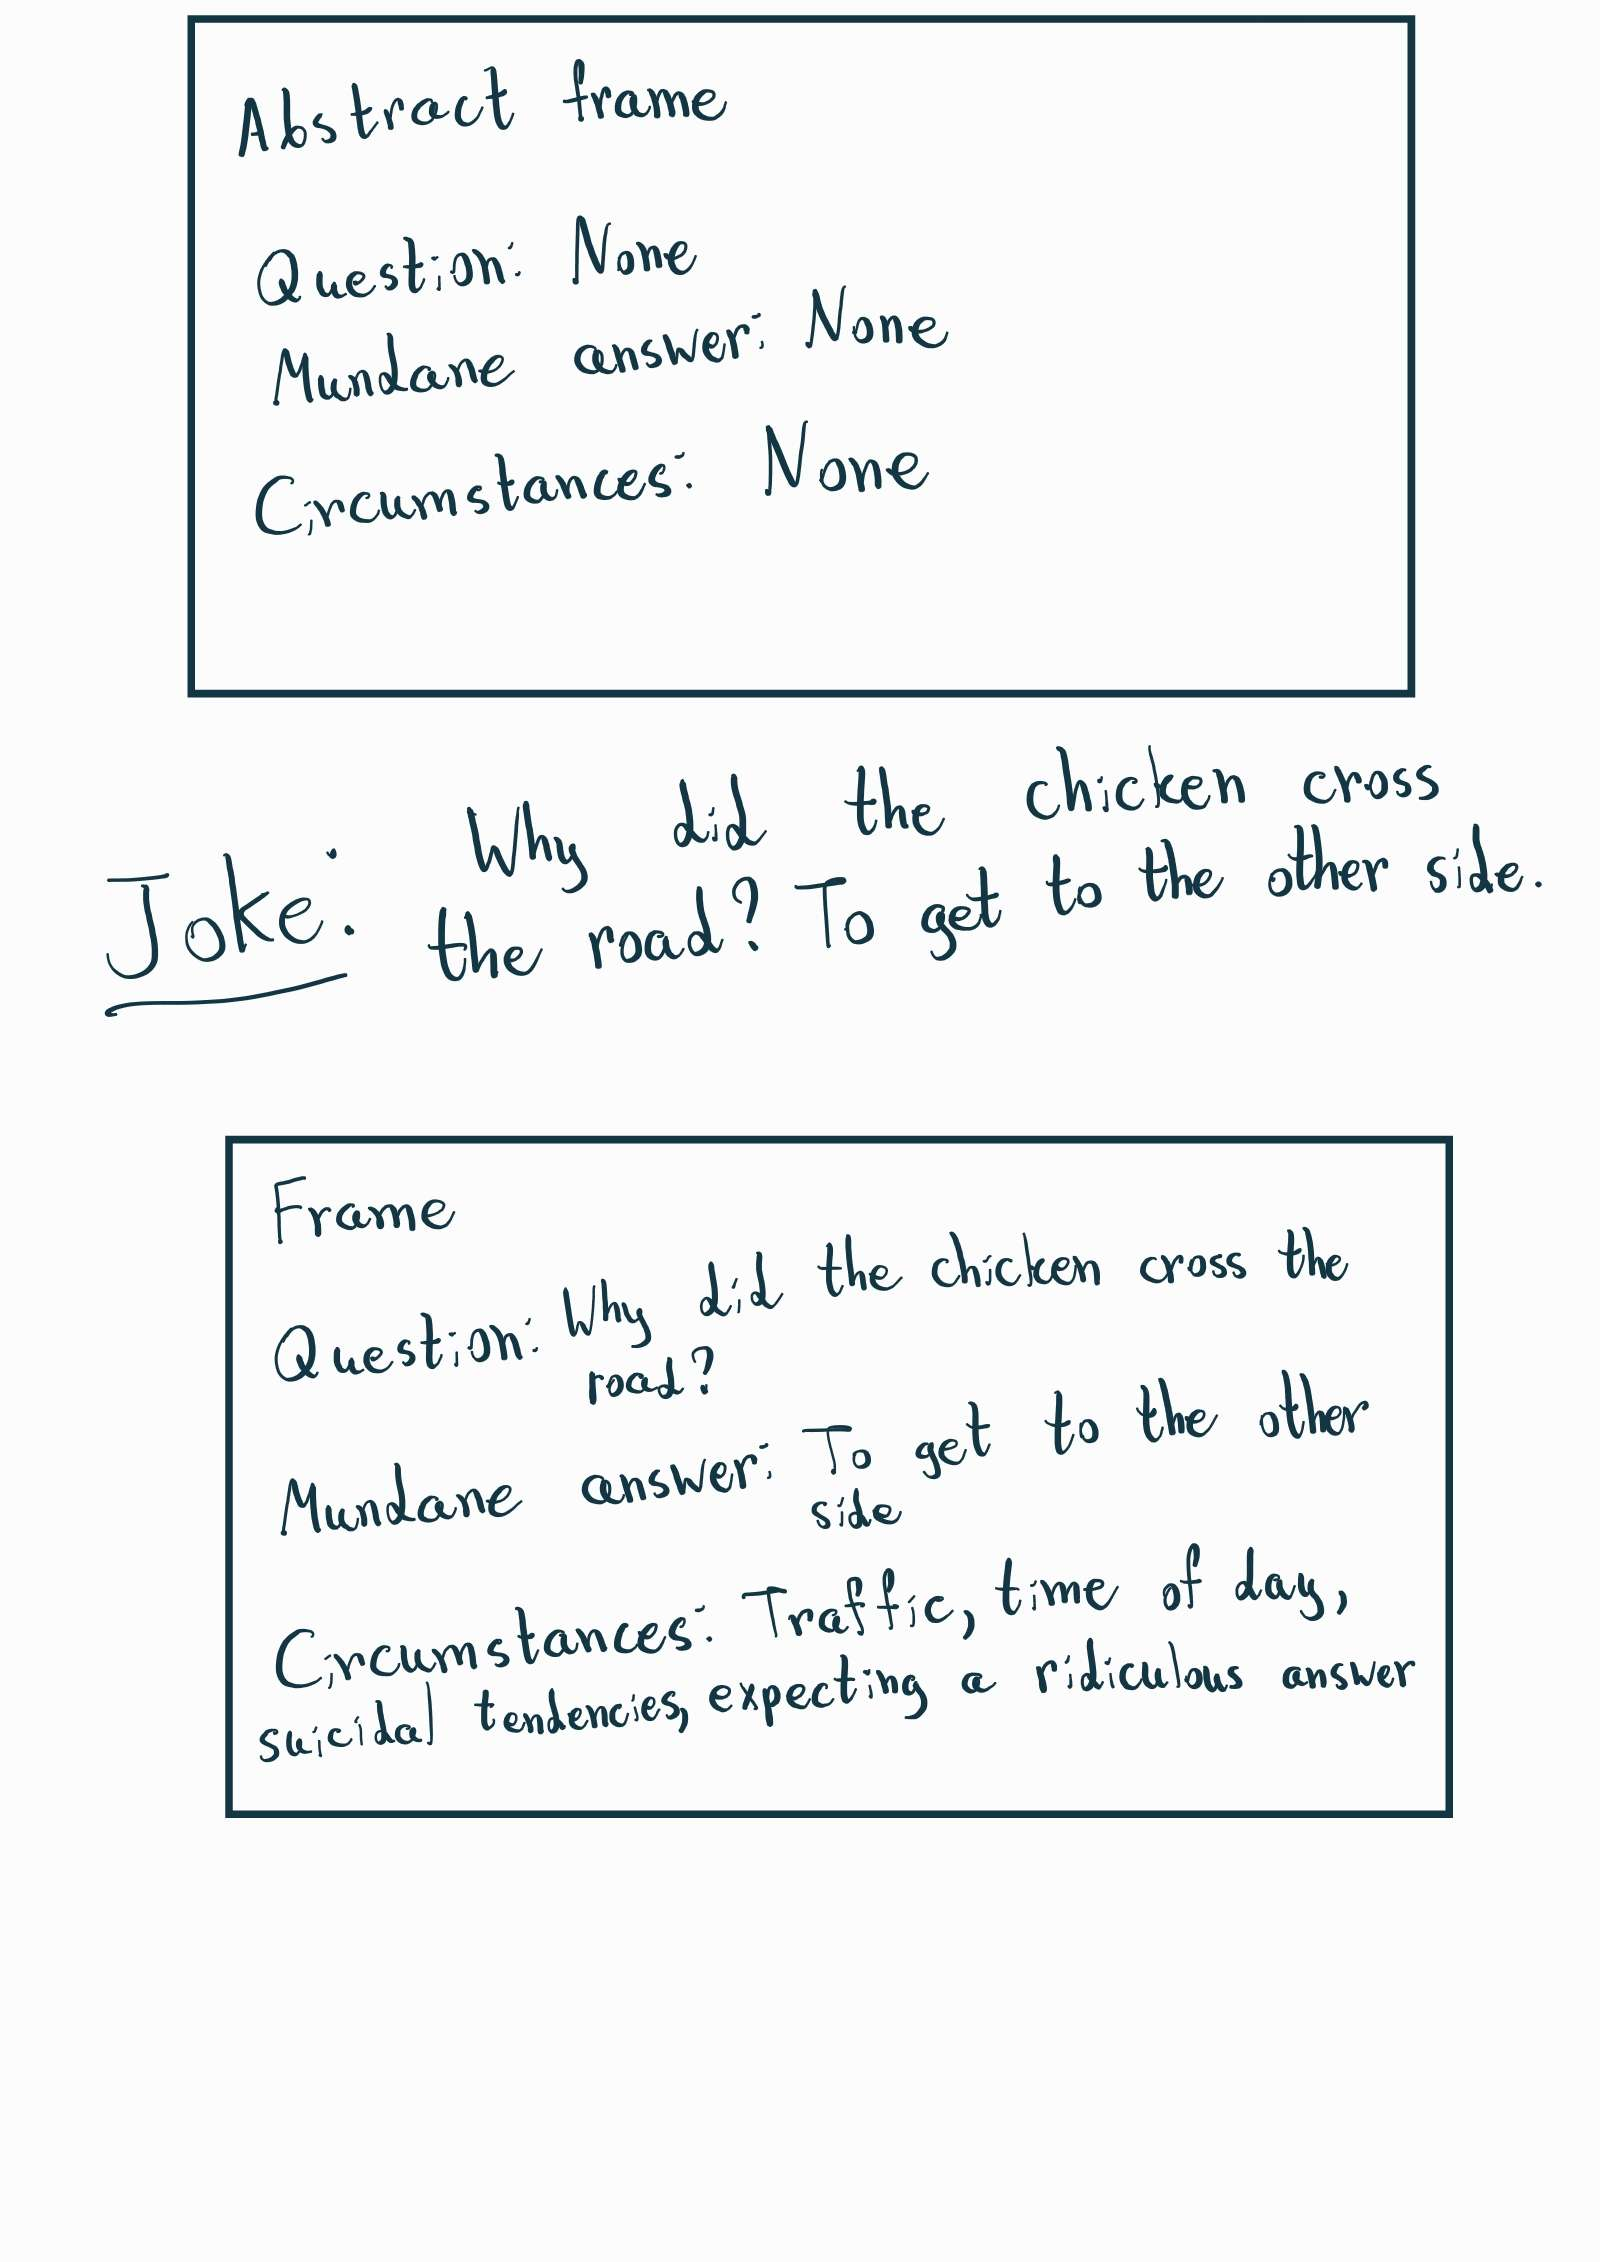 Abstract frame
Question: None
Mundane answer: None
Circumstances: None
Joke: Why did the chicken cross
the road? To get to the other side.
Frame
Question: Why did the chicken cross the
road?
Mundane answer: To get to the other
side
Circumstances: Traffic, time of day,
suicidal tendencies, expecting a ridiculous answer